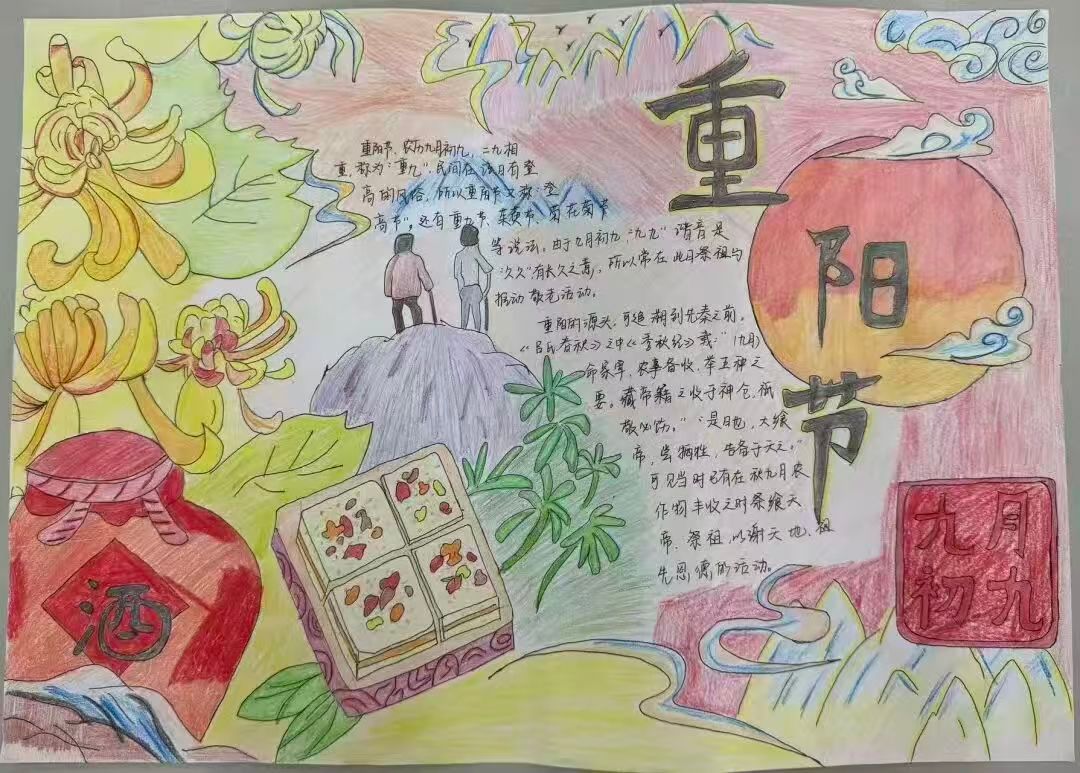 重
阳
节
重阳节、农历九月初九，二九相
重，称为"重九"，民间在该日有登
高的风俗，所以重阳节又称"登
高节"。还有重九节、茱萸节、菊花节
等说法。由于九月初九"九九"谐音是
"久久"有长久之意，所以常在此日祭祖与
推动敬老活动。
重阳的源头，可追溯到先秦之前。
《吕氏春秋》之中《季秋纪》载："(九月)
命冢宰，农事备收，举五种之
要。藏帝籍之收于神仓，祗
敬必饬。""是日也，大飨
帝，尝牺牲，告备于天子。"
可见当时已有在秋九月农
作物丰收之时祭飨天
帝、祭祖，以谢天地、祖
先恩德的活动。
酒
九月
初九